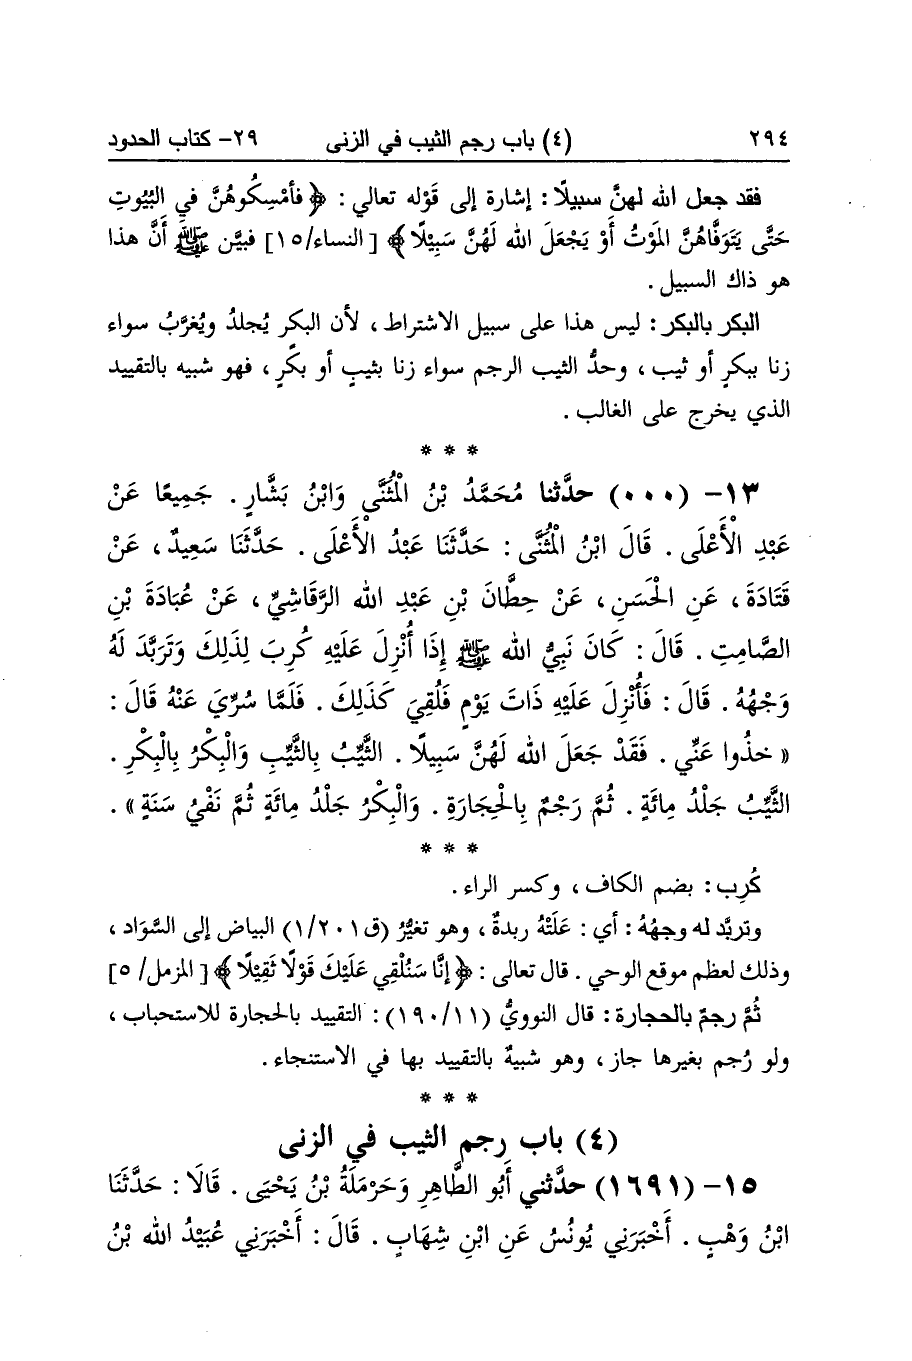 ٢٩٤ (٤) باب رجم الثيب في الزنى ٢٩- كتاب الحدود
فقد جعل الله لهنَّ سبيلًا : إشارة إلى قَوْله تعالي : ﴿ فأمْسِكُوهُنَّ في البُيُوتِ
حَتَّى يَتَوَفَّاهُنَّ المَوْتُ أوْ يَجْعَلَ الله لَهُنَّ سَبِيْلًا ﴾ [ النساء/١٥] فبيَّن ﷺ أنَّ هذا
هو ذاك السبيل .
البكر بالبكر : ليس هذا على سبيل الاشتراط ، لأن البكر يُجلدُ ويُغرَّبُ سواء
زنا ببكرٍ أو ثيب ، وحدُّ الثيب الرجم سواء زنا بثيبٍ أو بكْرٍ ، فهو شبيه بالتقييد
الذي يخرج على الغالب .
* * *
١٣- (٠٠٠) حدَّثنا مُحَمَّدُ بْنُ الْمُثَنَّى وَابْنُ بَشَّارٍ . جَمِيعًا عَنْ
عَبْدِ الْأَعْلَى . قَالَ ابْنُ الْمُثَنَّى : حَدَّثَنَا عَبْدُ الْأَعْلَى . حَدَّثَنَا سَعِيدٌ ، عَنْ
قَتَادَةَ ، عَنِ الْحَسَنِ ، عَنْ حِطَّانَ بْنِ عَبْدِ الله الرَّقَاشِيِّ ، عَنْ عُبَادَةَ بْنِ
الصَّامِتِ . قَالَ : كَانَ نَبِيُّ الله ﷺ إِذَا أُنْزِلَ عَلَيْهِ كُرِبَ لِذَلِكَ وَتَرَبَّدَ لَهُ
وَجْهُهُ . قَالَ : فَأُنْزِلَ عَلَيْهِ ذَاتَ يَوْمٍ فَلُقِيَ كَذَلِكَ . فَلَمَّا سُرِّيَ عَنْهُ قَالَ :
« خذُوا عَنِّي . فَقَدْ جَعَلَ الله لَهُنَّ سَبِيلًا . الثَّيِّبُ بِالثَّيِّبِ وَالْبِكْرُ بِالْبِكْرِ .
الثَّيِّبُ جَلْدُ مِائَةٍ . ثُمَّ رَجْمٌ بِالْحِجَارَةِ . وَالْبِكْرُ جَلْدُ مِائَةٍ ثُمَّ نَفْيُ سَنَةٍ » .
* * *
كُرِب : بضم الكاف ، وكسر الراء .
وتربَّد له وجهُهُ : أي : عَلَتْهُ ربدةٌ ، وهو تغيُّرُ (ق١/٢٠١) البياض إلى السَّوَاد ،
وذلك لعظم موقع الوحي . قال تعالى : ﴿ إنَّا سَنُلْقِي عَلَيْكَ قَوْلًا ثَقِيْلًا ﴾ [ المزمل/ ٥]
ثُمَّ رجمٌ بالحجارة : قال النوويُّ (١٩٠/١١) : التقييد بالحجارة للاستحباب ،
ولو رُجم بغيرها جاز ، وهو شبيهٌ بالتقييد بها في الاستنجاء .
* * *
(٤) باب رجم الثيب في الزنى
١٥- (١٦٩١) حدَّثني أَبُو الطَّاهِرِ وَحَرْمَلَةُ بْنُ يَحْيَى . قَالَا : حَدَّثَنَا
ابْنُ وَهْبٍ . أَخْبَرَنِي يُونُسُ عَنِ ابْنِ شِهَابٍ . قَالَ : أَخْبَرَنِي عُبَيْدُ الله بْنُ